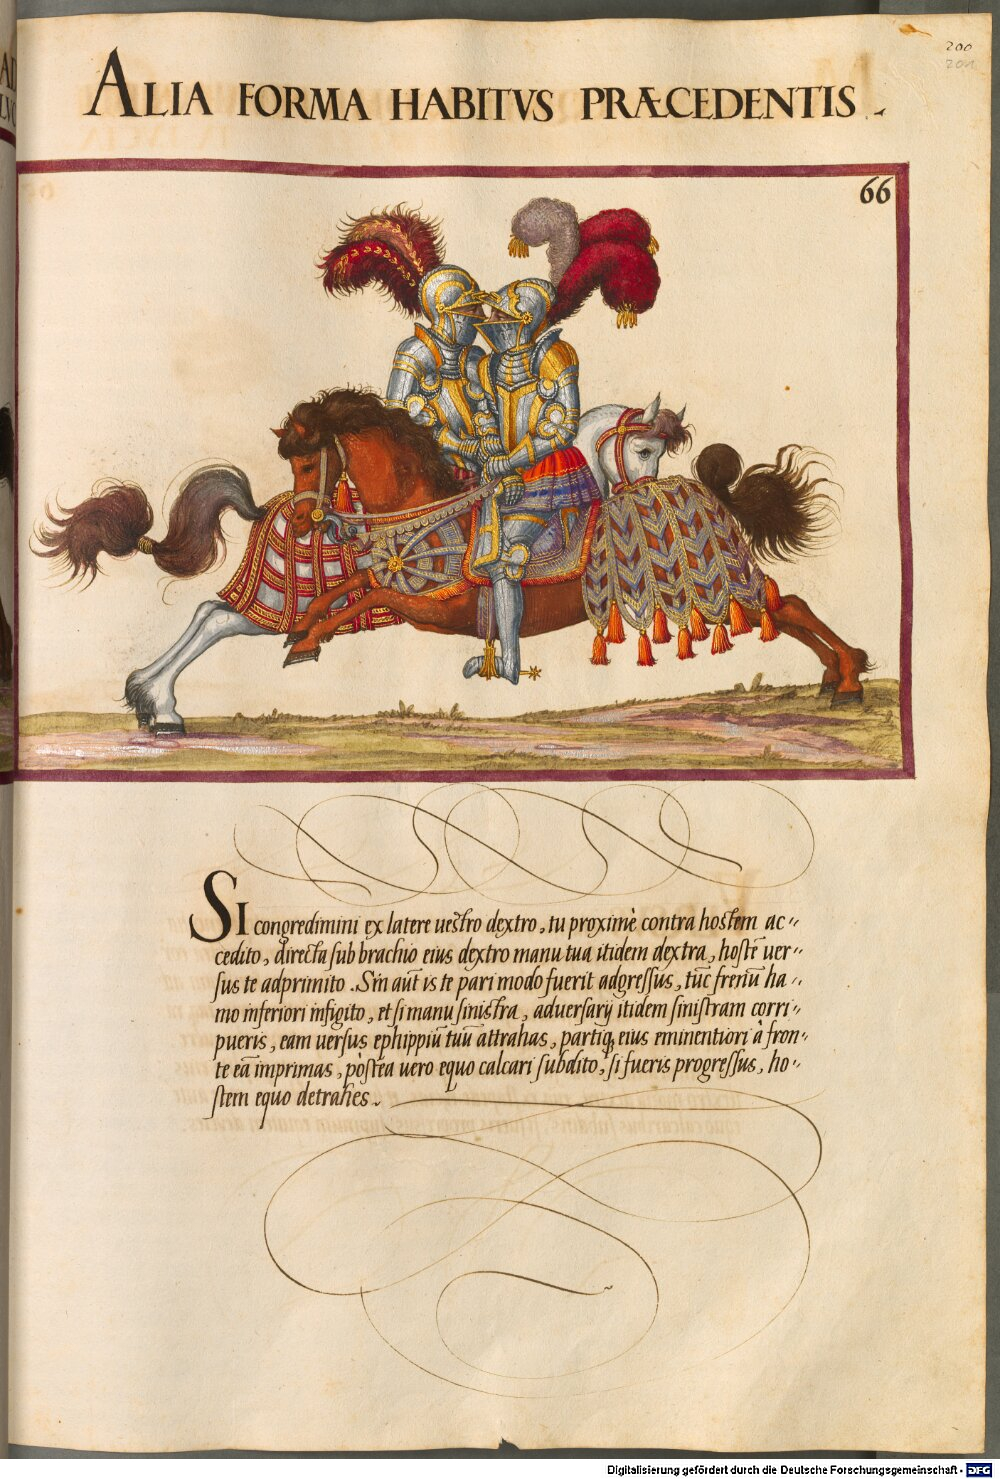 200
201
ALIA FORMA HABITVS PRÆCEDENTIS.
66
SI congredimini ex latere uestro dextro, tu proximè contra hostem ac〃
cedito, directa sub brachio eius dextro manu tua itidem dextra, hostē uer〃
sus te adprimito. Sin aūt is te pari modo fuerit adgressus, tūc frenū ha〃
mo inferiori infigito, et si manu sinistra, aduersarij itidem sinistram corri〃
pueris, eam uersus ephippiū tuū attrahas, partiq; eius eminentiori à fron〃
te eā imprimas, pòstea uero equo calcari subdito, si fueris progressus, ho〃
stem equo detrahes.
Digitalisierung gefördert durch die Deutsche Forschungsgemeinschaft - DFG